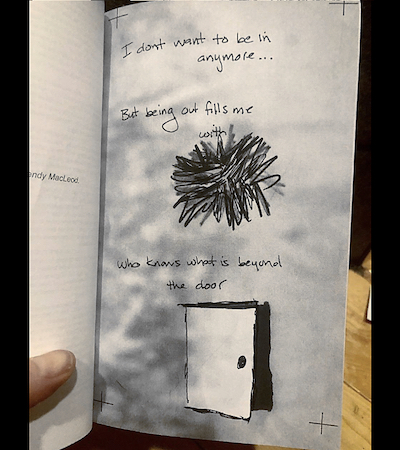 I dont want to be in
anymore...
But being out fills me
with
who knows what is beyond
the door
endy MacLeod.